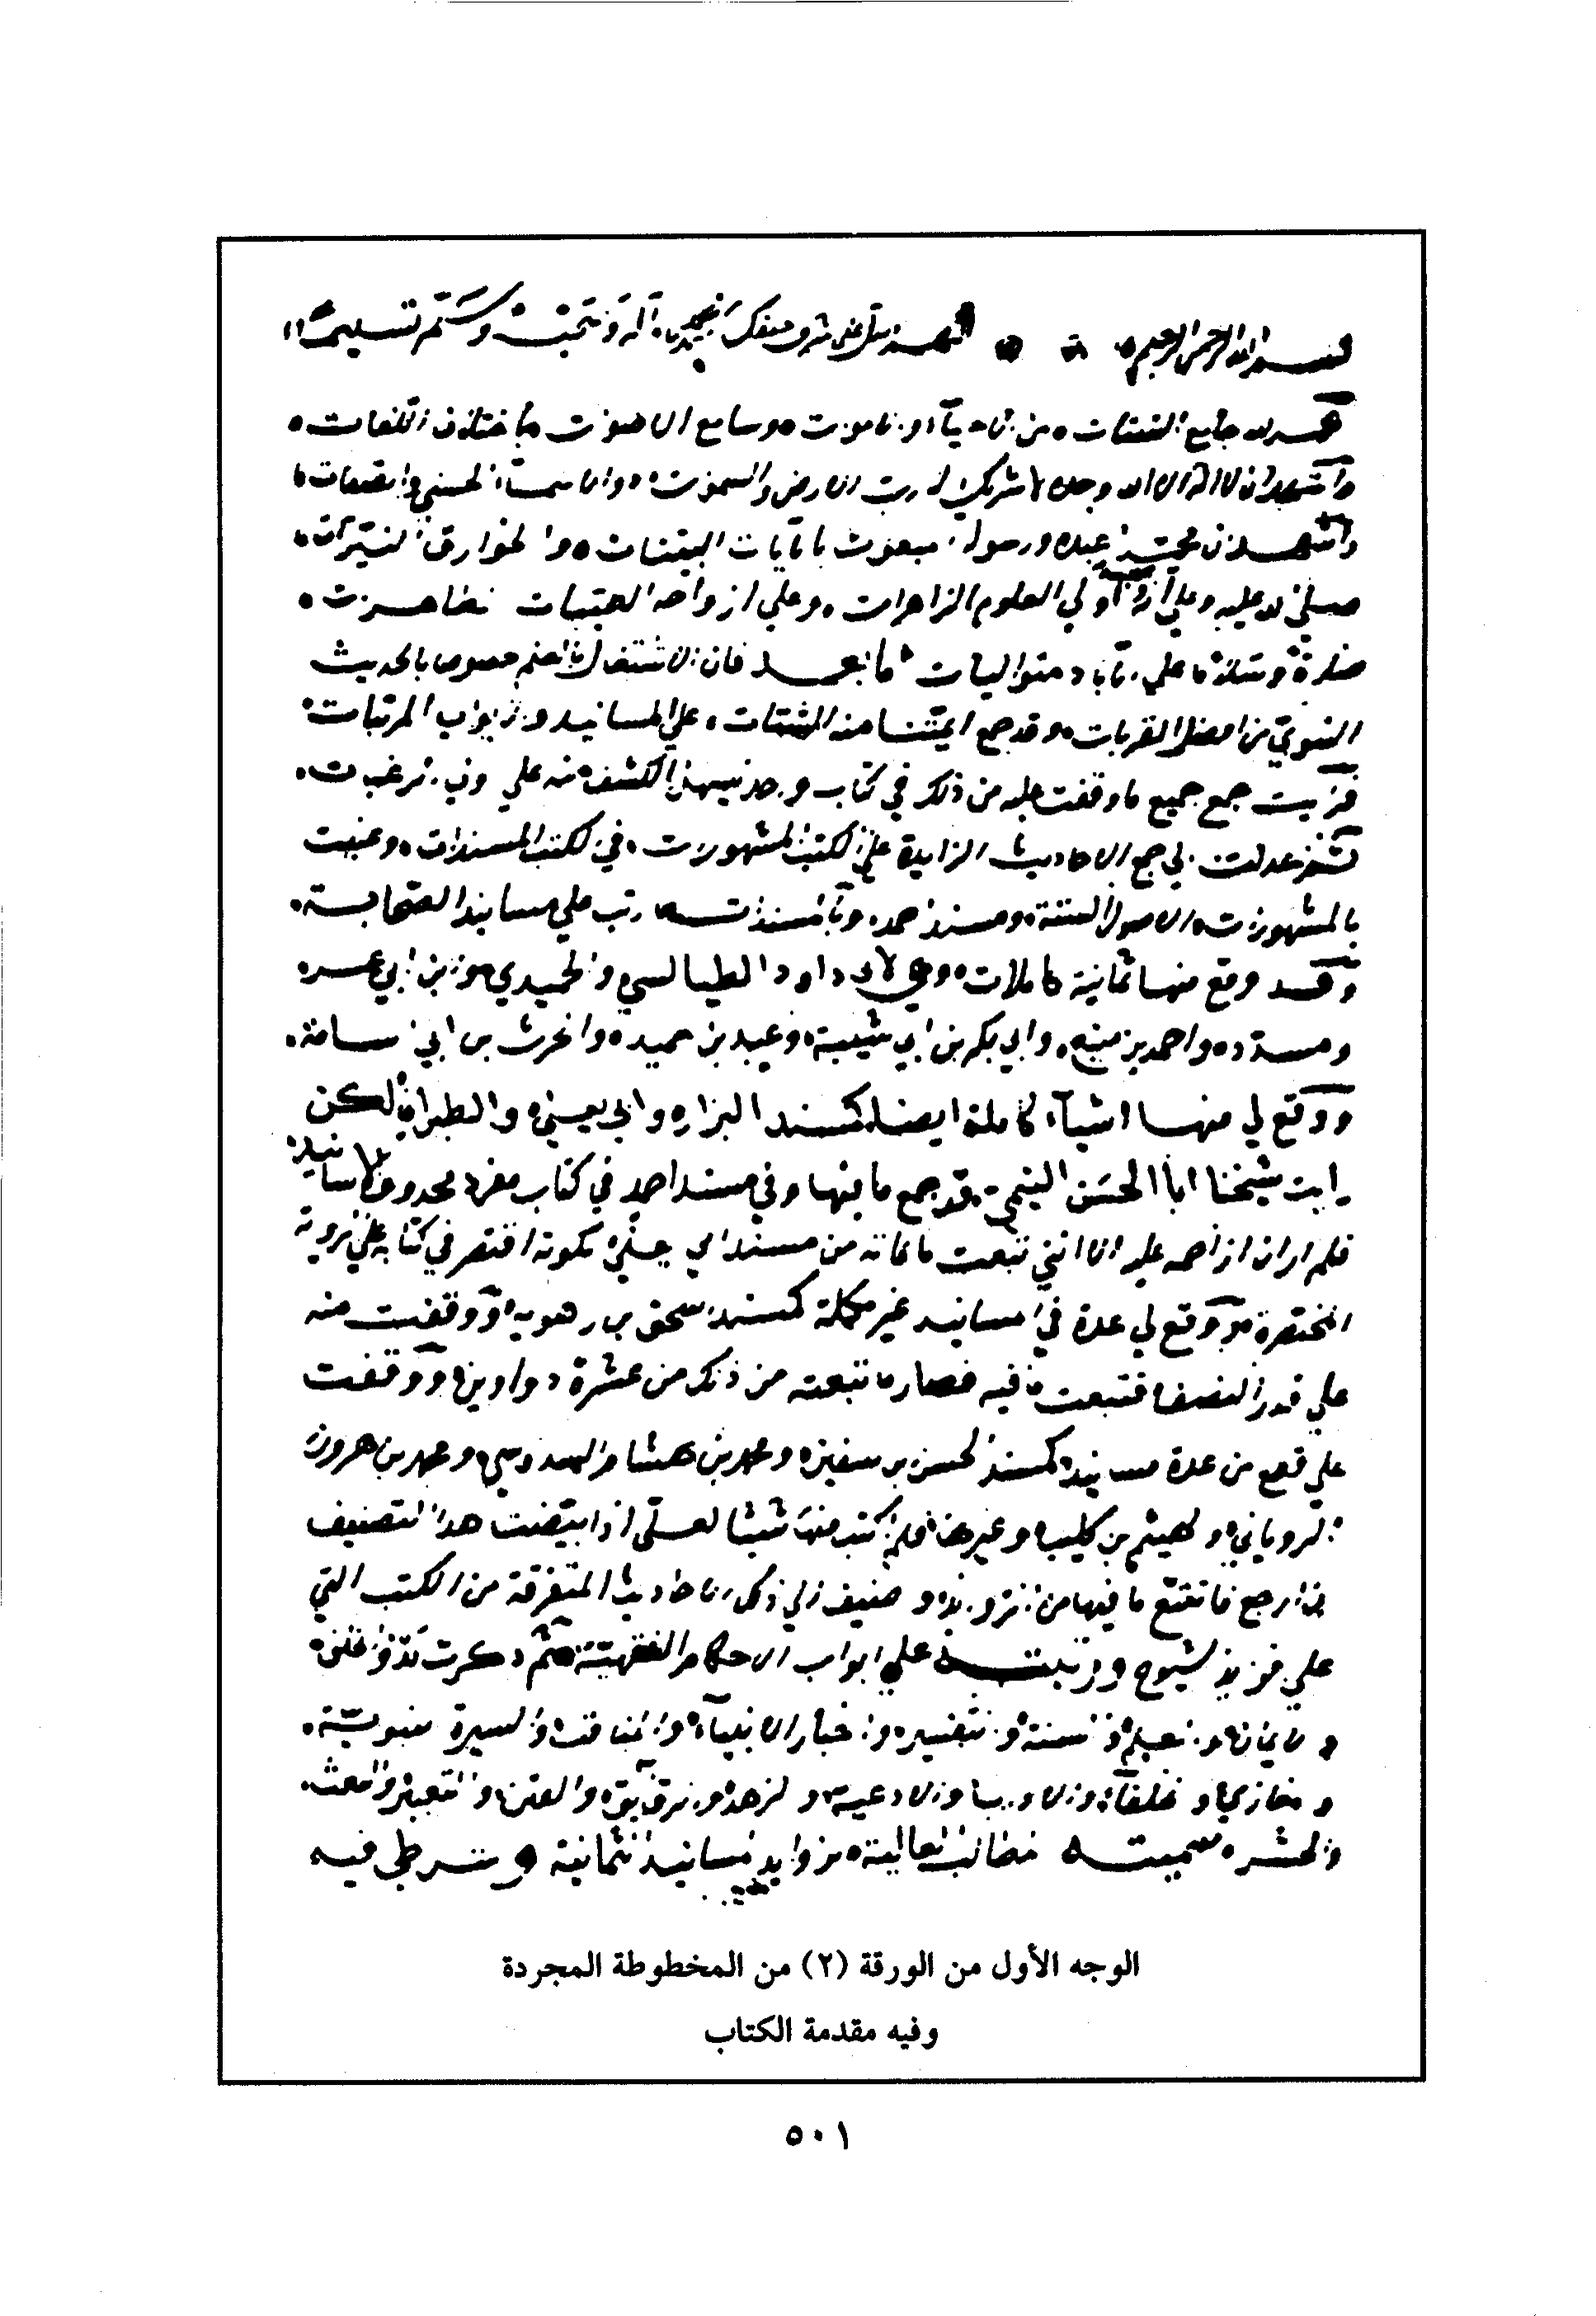 بسم الله الرحمن الرحيم اللهم صل على اشرف خلقك محمد وآله وصحبه وسلم تسليما
الحمد لله جامع الشتات من الاحياء والاموات وسامع الاصوات باختلاف اللغات
واشهد ان لا اله الا الله وحده لا شريك له رب الارض والسموات والاسماء الحسنى والصفات
واشهد ان محمدا عبده ورسوله المبعوث بالآيات البينات والخوارق النيرات
صلى الله عليه وعلى آله وصحبه اولي العلوم الزاهرات وعلى ازواجه الطاهرات
صلاة وسلاما على الآباد متواليات اما بعد فان الاشتغال بالعلم خصوصا بالحديث
النبوي من افضل القربات وقد جمع ايمتنا منه الشتات على المسانيد والابواب المرتبات
فرايت جمع جميع ما وقفت عليه من ذلك في كتاب واحد ليسهل الكشف منه على اولي الرغبات
ثم عدلت الى جمع الاحاديث الزايدة على الكتب المشهورات في الكتب المسندات وعنيت
بالمشهورات الاصول الستة ومسند احمد وبالمسندات ما رتب على مسانيد الصحابة
وقد وقع منها ثمانية كاملات وهي لابي داود الطيالسي والحميدي وابن ابي عمر
ومسدد واحمد بن منيع وابي بكر بن ابي شيبة وعبد بن حميد والحرث بن ابي اسامة
ووقع لي منها اشياء كاملة ايضا كمسند البزار وابي يعلى والطبراني لكن
رايت شيخنا ابا الحسن الهيثمي قد جمع ما فيها وفي مسند احمد في كتاب مفرد محذوف الاسانيد
فلم ار ان ازاحمه عليه الا انني تتبعت ما فاته من مسند ابي يعلى لكونه اقتصر في كتابه على الرواية
المختصرة ووقع لي عدة من المسانيد غير مكملة كمسند اسحق بن راهويه ووقفت منه
على قدر النصف فتتبعت ما فيه فصار ما تتبعته من ذلك من عشرة دواوين ووقفت
على قطع من عدة مسانيد كمسند الحسن بن سفين ومحمد بن هشام السدوسي ومحمد بن هرون
الروياني والهيثم بن كليب وغيرها فلم اكتب منها شيئا لعلي اذا بيضت هذا التصنيف
ان ارجع فاتتبع ما فيها من الزوايد واضيف الى ذلك الاحاديث المتفرقة من الكتب التي
على فوايد الشيوخ ورتبته على ابواب الاحكام الفقهية ثم ذكرت بدو الخلق
والايمان والعلم والسنة والتفسير واخبار الانبياء والمناقب والسيرة النبوية
والمغازي والخلفاء والادب والادعية والزهد والرقايق والفتن والتعبير والبعث
والحشر وسميته المطالب العالية بزوايد المسانيد الثمانية وشرطي فيه
الوجه الأول من الورقة (٢) من المخطوطة المجردة
وفيه مقدمة الكتاب
٥٠١